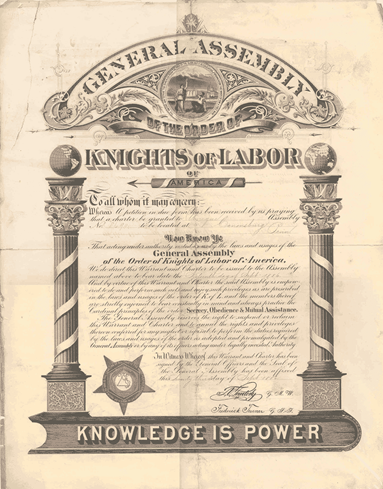 GENERAL ASSEMBLY
OF THE ORDER OF
KNIGHTS OF LABOR
OF
AMERICA
To all whom it may concern:
Whereas A petition in due form has been received by us praying
that a charter be granted to Assembly
No. to be located at
Now Know Ye
That acting under authority vested in us by the laws and usages of the
General Assembly
of the Order of Knights of Labor of America,
We do grant this Warrant and Charter to be issued to the Assembly
named above to bear date the
And by virtue of this Warrant and Charter the said Assembly is
to do and perform such acts and enjoy such privileges as are prescribed
in the laws and usages of the order of K of L and the members thereof
are strictly enjoined to bear in mind and always practice the
Cardinal principles of the order Secrecy, Obedience & Mutual Assistance.
The General Assembly reserves the right to suspend or reclaim
this Warrant and Charter and to annul the rights and privileges
herein conferred for any neglect or refusal to perform the duties required
by the laws and usages of the order as adopted and promulgated by the
General Assembly or by any of its officers acting under legally constituted Authority.
In Witness Whereof this Warrant and Charter has been
signed by the General Officers and the Seal of
the General Assembly has been affixed
this day of
T. V. Powderly G. M. W.
Frederick Turner
KNOWLEDGE IS POWER